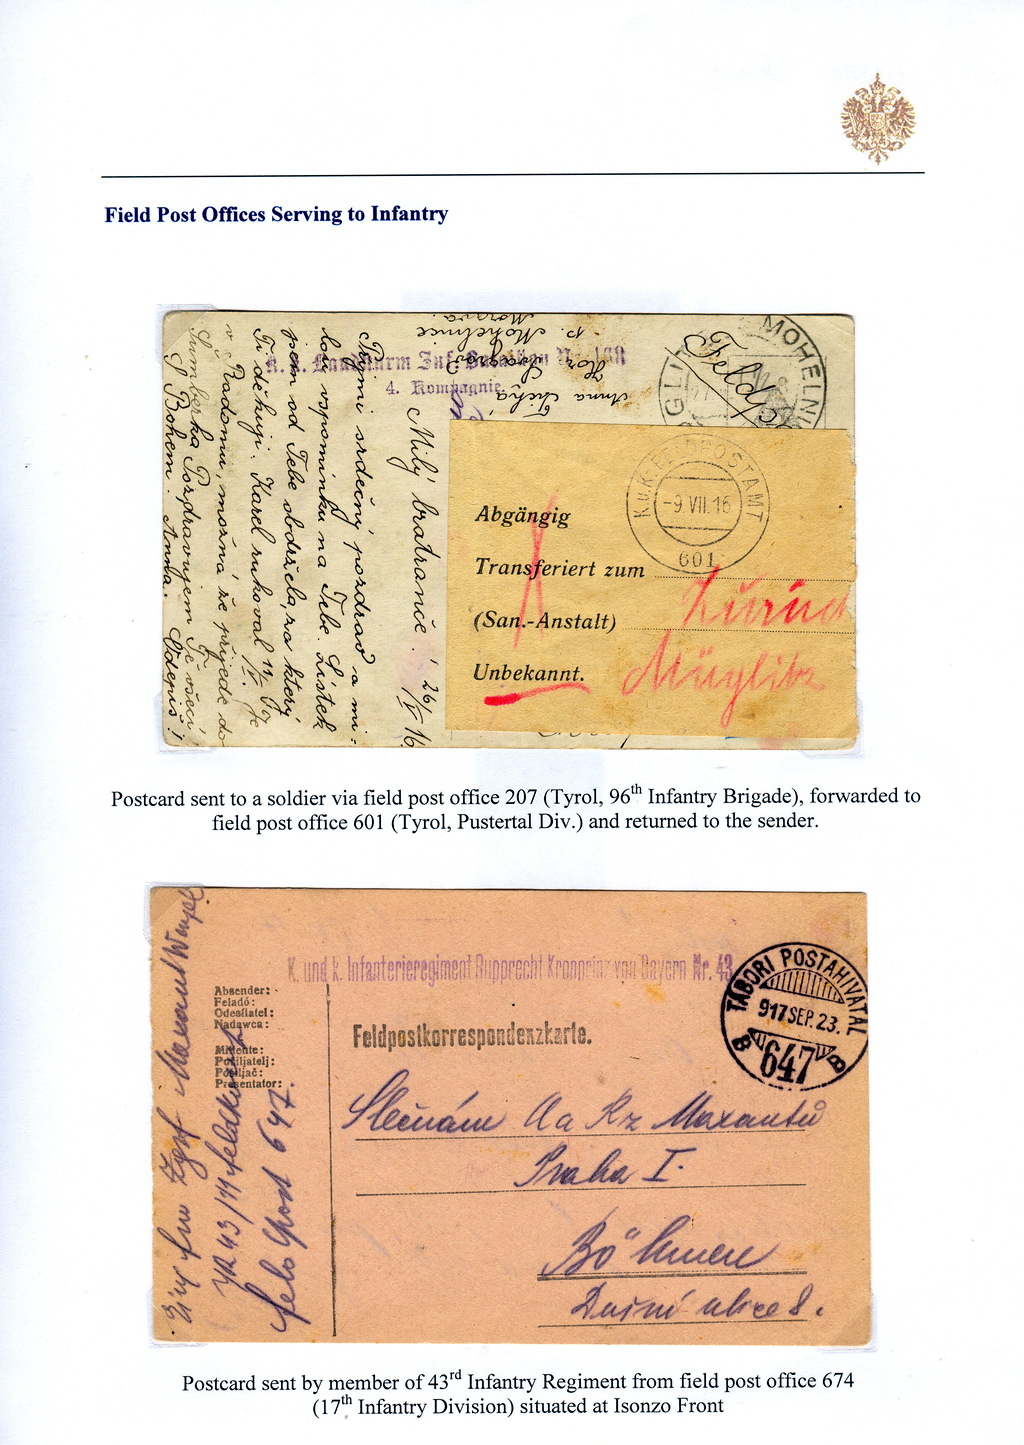 Field Post Offices Serving to Infantry
K. k. Landsturm Inf. Bataillon Nr. 168
4. Kompagnie
Feldpost
MOHELNI
MÜGLITZ
Anna Tichá
Hor. Libivá
p. Mohelnice
Morava
Milý bratranče! 26/V 16.
Přijmi srdečný pozdrav a mi-
lou vzpomínku na Tebe. Lístek
jsem od Tebe obdržela, za který
Ti děkuji. Karel rukoval 15/V. Je
v Radomu, možná že přijede do
Šumberka. Pozdravujem Tě všeci
S Bohem. Anna. Odepiš!
K.u.K. FELDPOSTAMT
-9.VII.16
601
Abgängig
Transferiert zum
(San.-Anstalt)
Unbekannt.
Zurück
Müglitz
Postcard sent to a soldier via field post office 207 (Tyrol, 96th Infantry Brigade), forwarded to
field post office 601 (Tyrol, Pustertal Div.) and returned to the sender.
K. und k. Infanterieregiment Rupprecht Kronprinz von Bayern Nr. 43
TÁBORI POSTAHIVATAL
917 SEP. 23.
B 647 B
Absender:
Feladó:
Odesílatel:
Nadawca:
Mittente:
Pošiljatelj:
Pošiljač:
Presentator:
IR 43/11 Feldkomp
Feldpost 647.
Feldpostkorrespondenzkarte.
Slečnám Aa Rz Maxantů
Praha I.
Böhmen
Dušní ulice 8.
Postcard sent by member of 43rd Infantry Regiment from field post office 674
(17th Infantry Division) situated at Isonzo Front